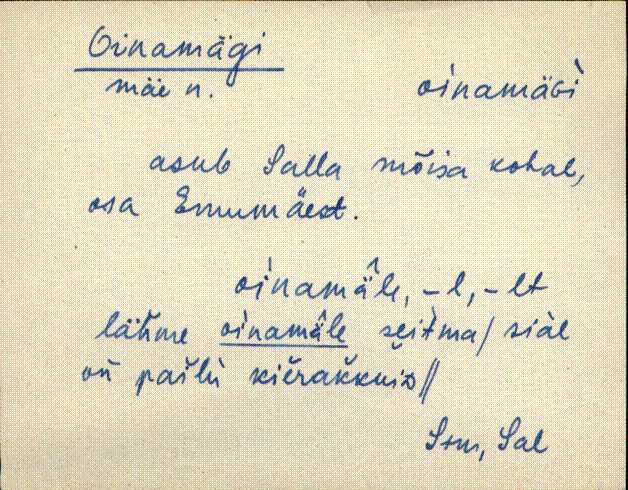 Oinamägi
mäe n. oìnamäGì
asub Salla mõisa kohal,
osa Emumäest.
oìnamä̂le, -l, -lt
läh̆me oìnamä̂le sĕitma / siàl
oń pal̆lu kiĕrak̆kuiD //
Sim, Sal